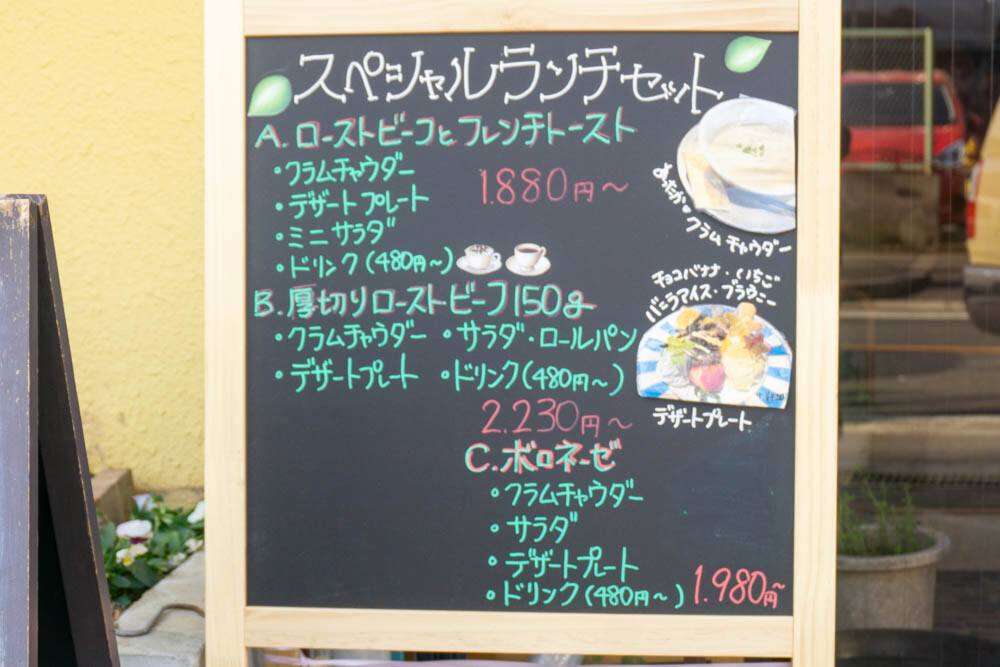 スペシャルランチセット
A. ローストビーフとフレンチトースト
・クラムチャウダー
・デザートプレート
・ミニサラダ
・ドリンク(480円～)
1.880円～
B. 厚切りローストビーフ150g
・クラムチャウダー ・サラダ・ロールパン
・デザートプレート ・ドリンク(480円～)
2.230円～
C. ボロネーゼ
・クラムチャウダー
・サラダ
・デザートプレート
・ドリンク(480円～)
1.980円～
あったか クラムチャウダー
チョコバナナ・いちご
バニラアイス・ブラウニー
デザートプレート